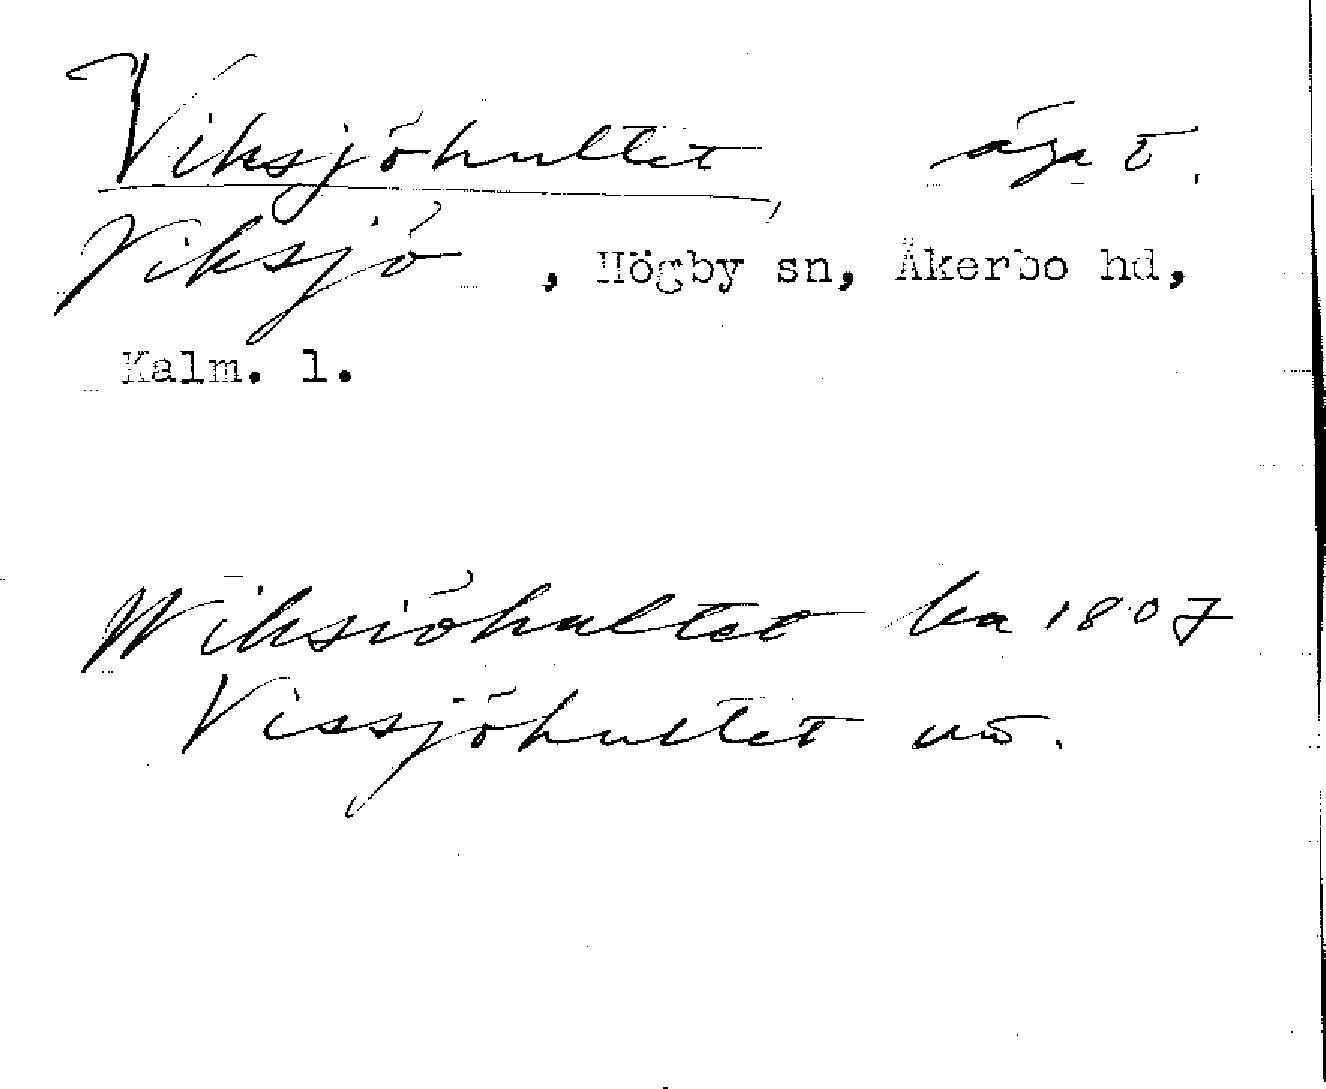 Viksjöhultet, äga ö.
Viksjö, Högby sn, Åkerbo hd,
Kalm. l.
Wiksiöhultet ka 1807
Vissjöhultet uö.